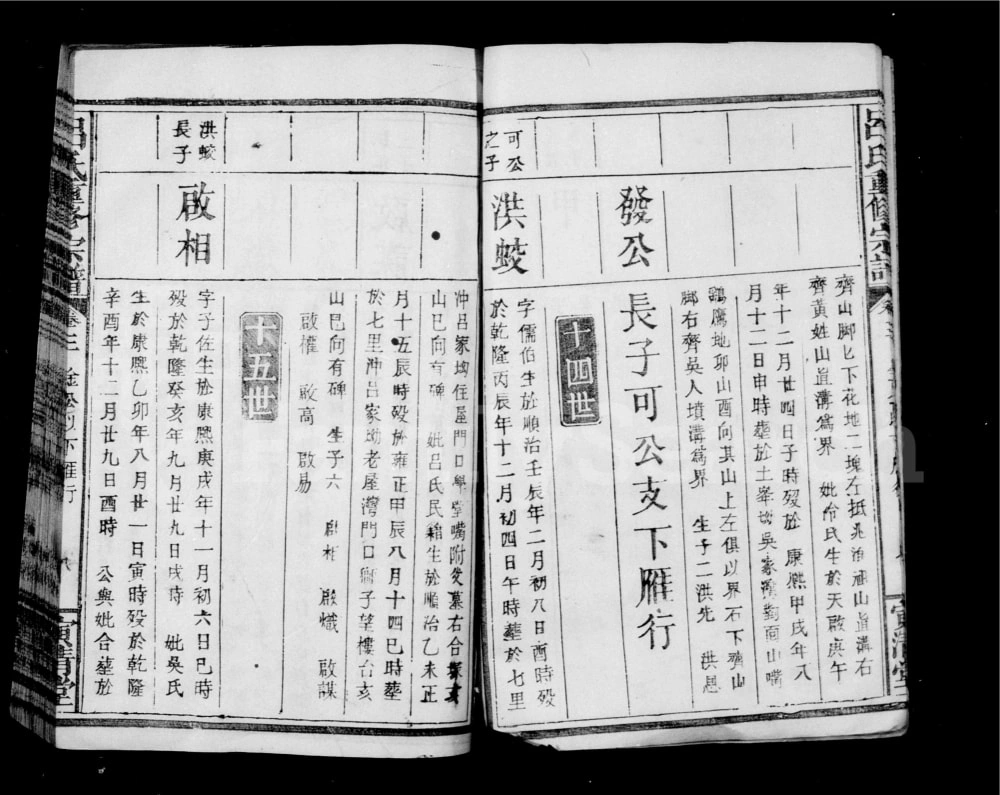 呂氏重修宗譜
齊山脚匕下花地二塊左抵兆治
山直溝右
齊黃姓山直溝爲界 妣佘氏生於天啟庚午
年十二月廿四日子時殁於康熙甲戌年八
月十二日申時塟於土峯
吳家
對面山嘴
鷹地卯山酉向其山上左俱以界石下齊山
脚右齊吳人墳溝爲界 生子二洪先 洪
發公
長子可公支下雁行
十四世
可公之子
洪蛟
字儒伯生於順治壬辰年二月初八日酉時殁
於乾隆丙辰年十二月初四日午時塟於七里
冲呂家坳住屋門口學堂嘴附發墓右合
山巳向有碑 妣呂氏民
生於順治乙未正
月十五辰時殁於雍正甲辰八月十四巳時塟
於七里冲呂家坳老屋灣門口獅子望樓台亥
山巳向有碑 生子六 啟相 啟熾 啟謀
啟權 啟高 啟易
十五世
洪蛟長子
啟相
字子佐生於康熙庚戌年十一月初六日巳時
殁於乾隆癸亥年九月廿九日戌時 妣吳氏
生於康熙乙卯年八月廿一日寅時殁於乾隆
辛酉年十二月廿九日酉時 公與妣合塟於
呂氏重修宗譜
卷三
下雁行
寅清堂